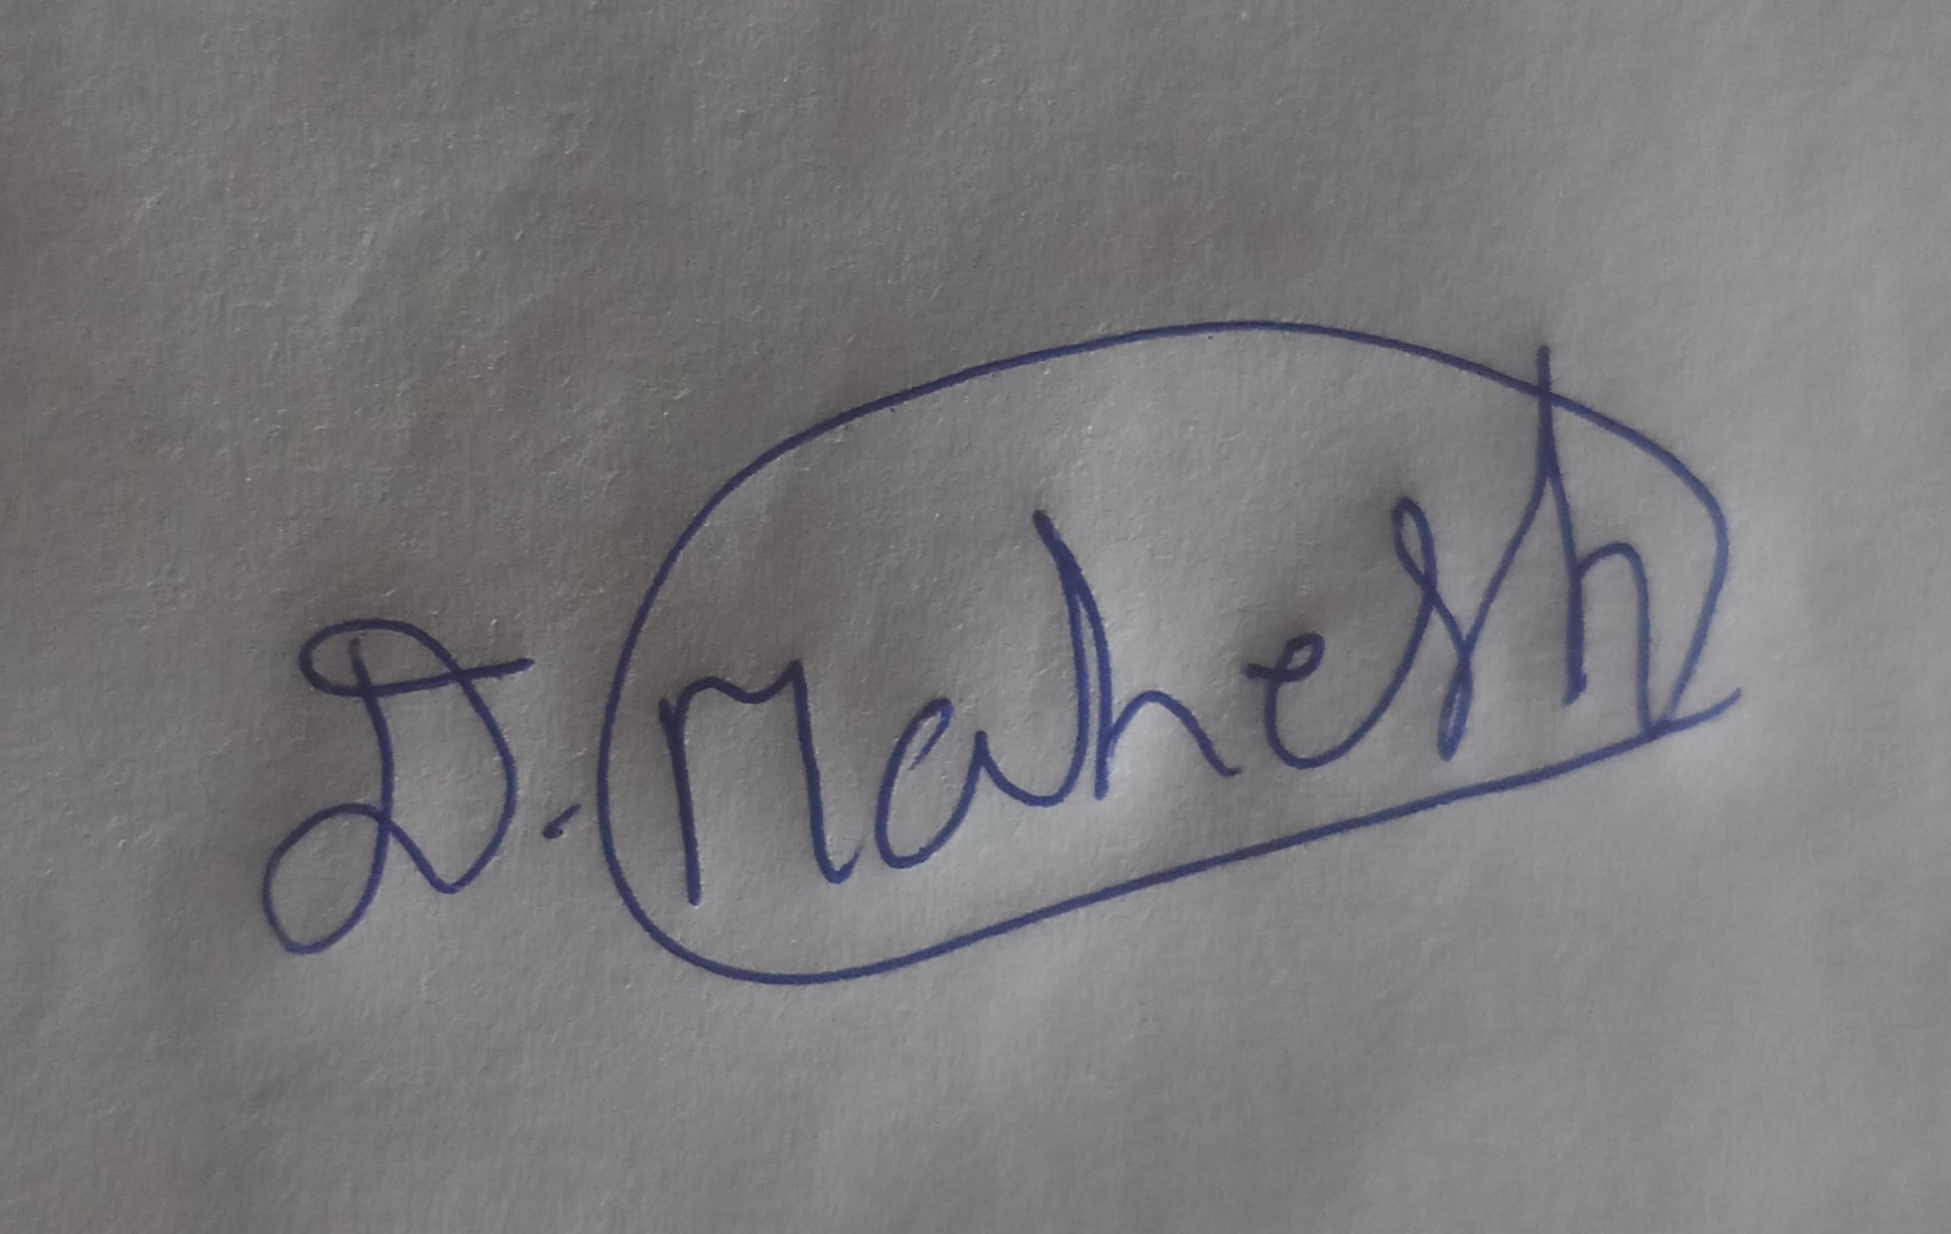 D. Mahesh